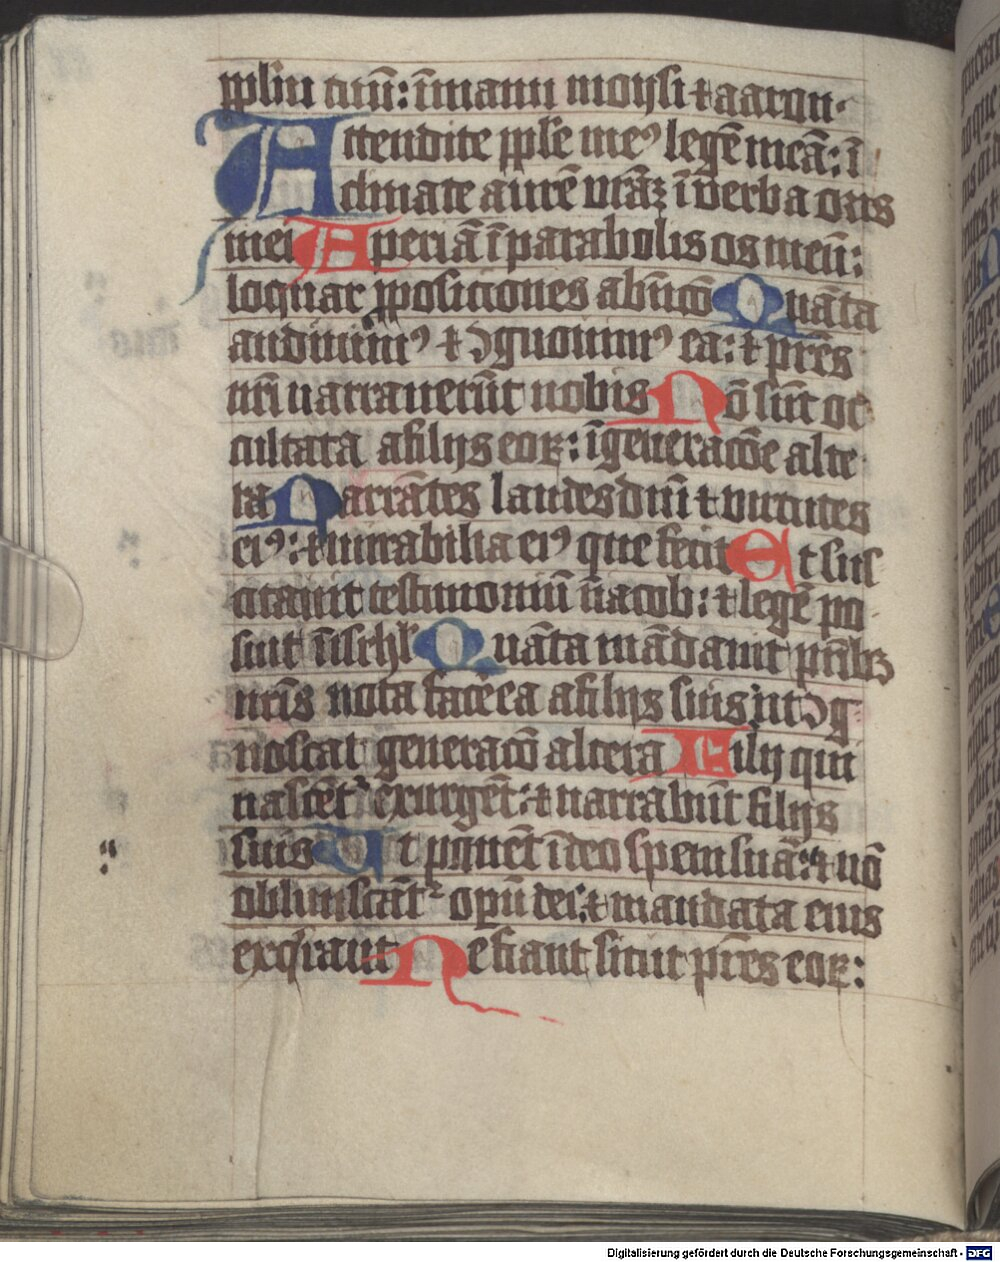 pplm̄ tuū: īmanu moysi ⁊ aaron·
Attendite pple meꝰ legē meā: ī
clinate aurē vr̄aꝫ ī verba oris
mei Aperiā ī parabolis os meū:
loquar ꝓposiciones abīicō Quāta
audiuimꝰ ⁊ ꝯgnouimꝰ ea: ⁊ pr̄es
nr̄i narrauerūt nobis Nō sūt oc
cultata afilijs eoꝝ: īgeneracōe alte
ra Narrātes laudes dn̄i ⁊ virtutes
eiꝰ: ⁊ mirabilia eiꝰ que fecit Et sus
citauit testimoniū ī iacob: ⁊ legē po
suit ī isrl̄ Quāta mādauit pr̄ibꝫ
nr̄is nota facē ea afilijs suis: ut ꝯg
noscat generacō altera Filij qui
nascēt᷑ ⁊ exurgēt: ⁊ narrabūt filijs
suis Ut ponēt ī deo spem suā: ⁊ nō
obliuiscāt᷑ operū dei: ⁊ mandata eius
exquirant Ne fiant sicut pr̄es eoꝝ:
Digitalisierung gefördert durch die Deutsche Forschungsgemeinschaft - DFG